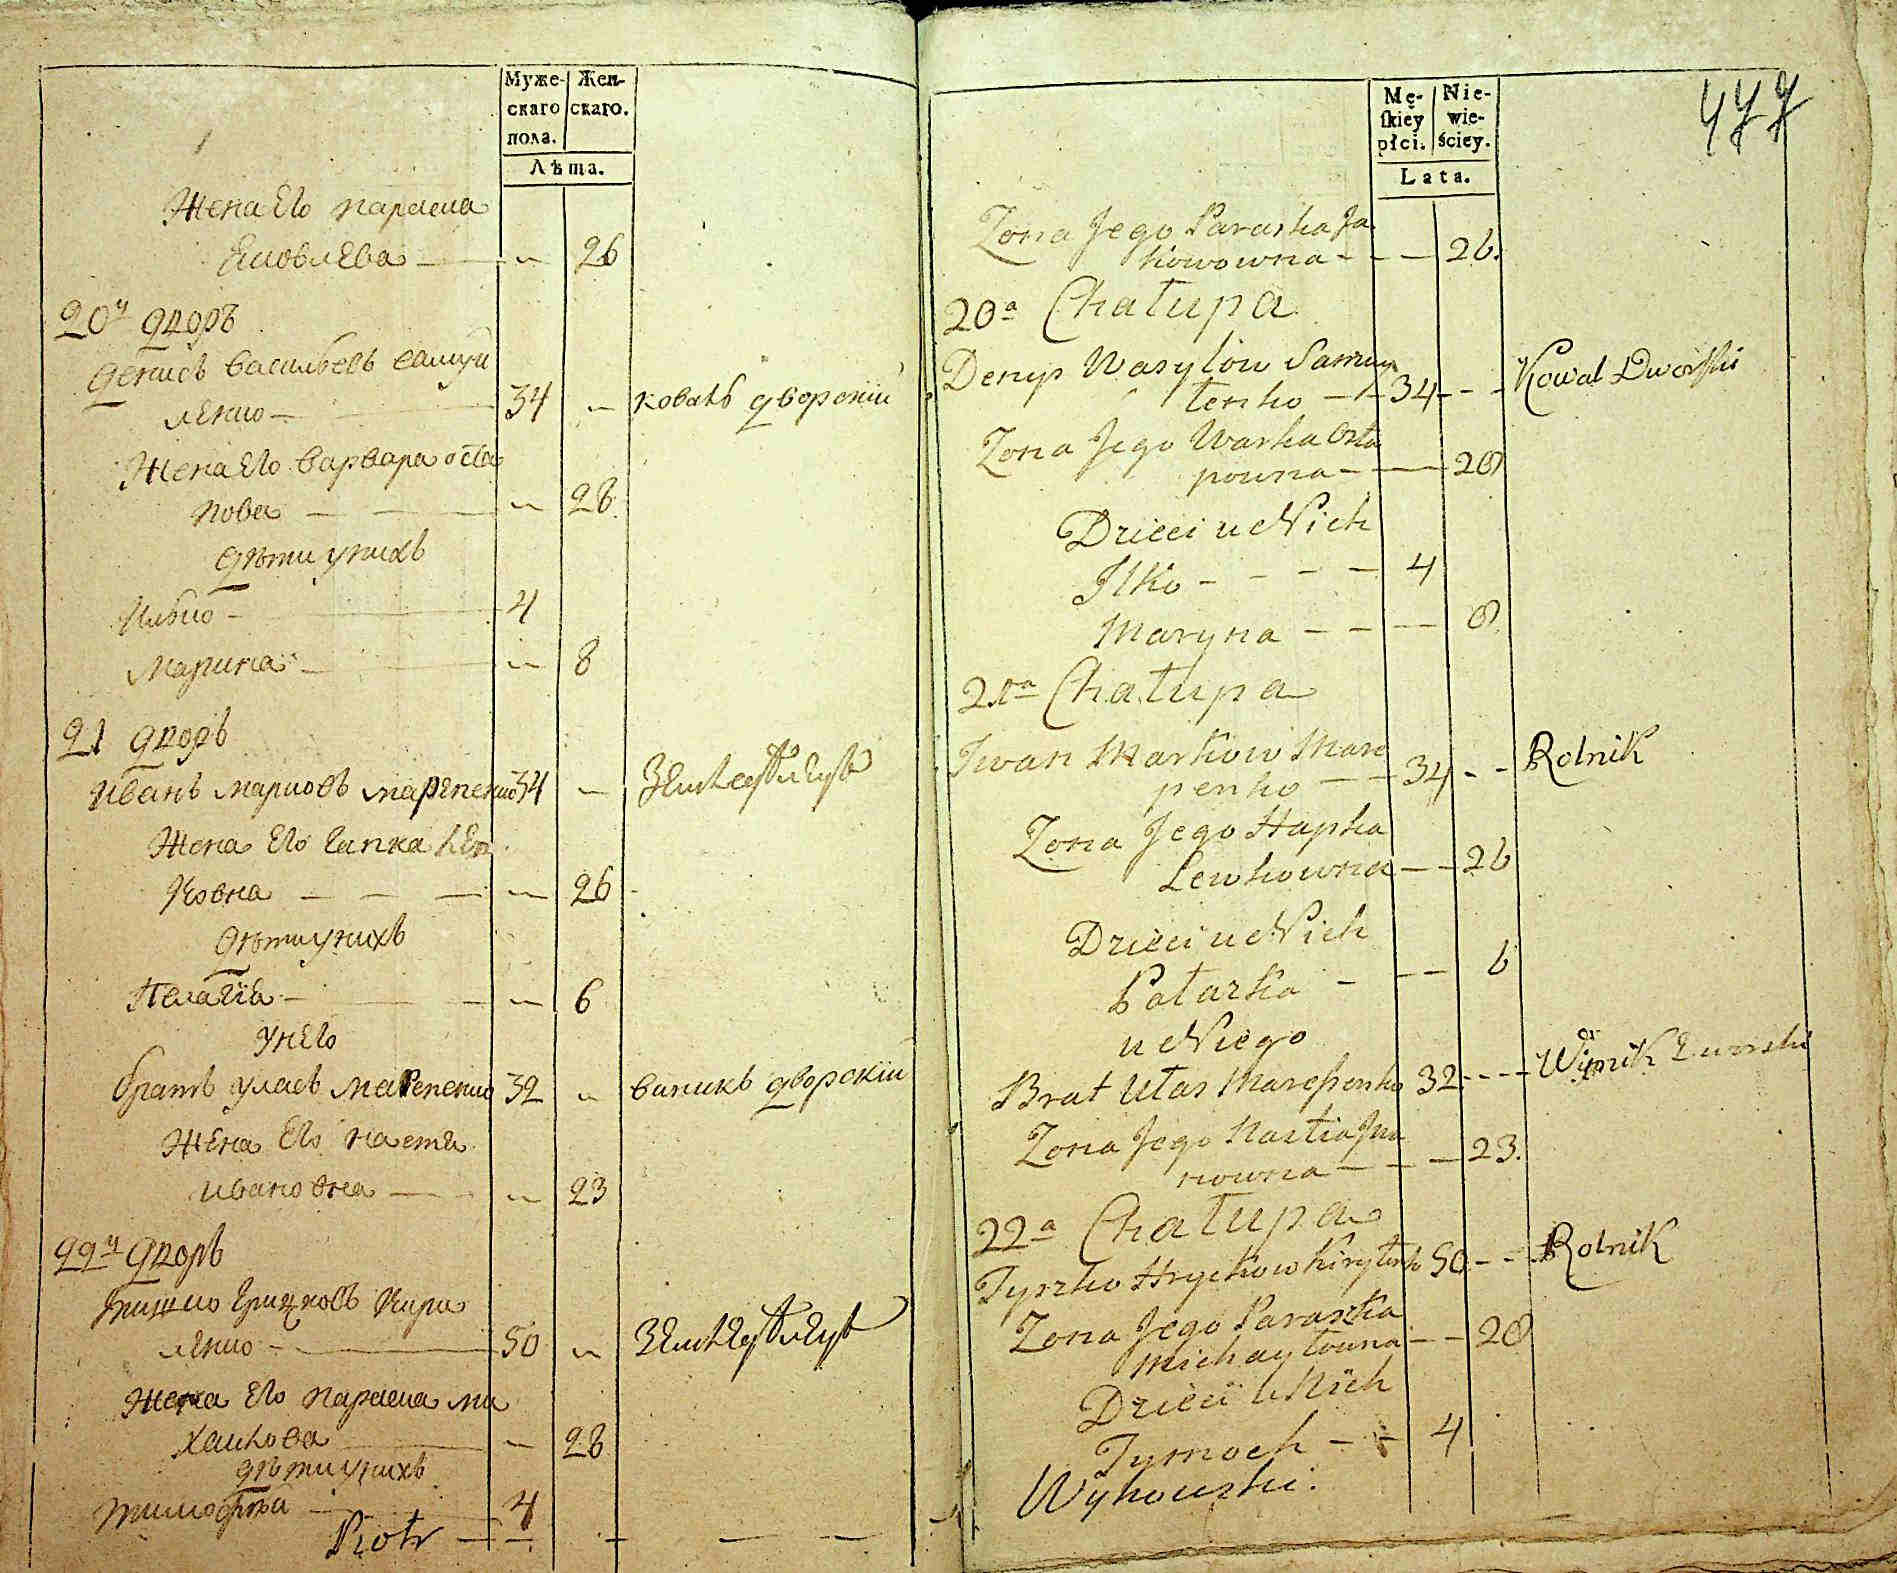 Муже-
скаго
пола.
Жен-
скаго.
Лѣта.
Жена Его параска
Яковлева — 26
20й дворъ
Денисъ васильевъ самуи
ленко — 34 — коваль дворскіи
Жена Его варвара оста
пова — — — — 28
дѣти унихъ
Илько — 4
Марина — — 8
21 дворъ
Иванъ марковъ марепенко 34 —
Жена Его гапка лев
ковна — — — — 26
дѣти унихъ
Пелагія — — 6
унего
братъ уласъ марепенко 32 — виникъ дворскіи
Жена Его настя
ивановна — — 23
22й дворъ
тишко грицковъ кири
ленко — 50 —
Жена Его параска ми
хаилова — 28
дѣти унихъ
тимофѣи — 4
Piotr — — — — —
477
Mę-
skiey
płci.
Nie-
wie-
ściey.
Lata.
Zona Jego Paraska Ja
kowowna - - — 26.
20a Chałupa
Denys Wasylow Samuy
łenko — 34 - - - Kowal Dworski
Zona Jego Warka Osta
powna — — 28
Dzieci u Nich
Ilko - - - — 4
Maryna — — — 8
21a Chałupa
Iwan Markow Mare
penko — — 34 - - Rolnik
Zona Jego Hapka
Lewkowna — — 26
Dzieci u Nich
Połazka - — — 6
u Niego
Brat Ułas Marepenko 32 - - - - Winnik Dworski
Zona Jego Nastia Jwa
nowna — - — 23.
22a Chałupa
Tyszko Hryckow Kiryłenko 50 - - - Rolnik
Zona Jego Paraska
Michayłowna — — 28
Dzieci u Nich
Tymoch - - 4
Wyhowski.